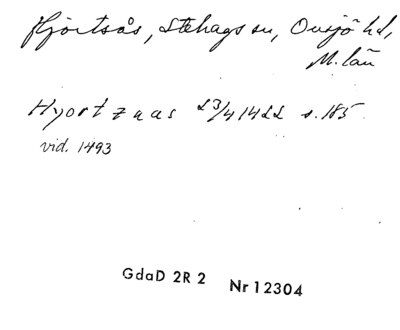 Hjortsås, Stehags sn, Onsjö hd,
M. län
Hyortzaas 23/4 1422 s. 185
vid. 1493
GdaD 2R 2 Nr 12304